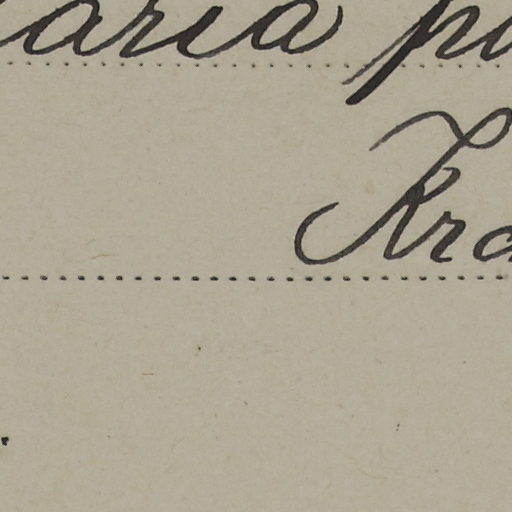 aria po
Kra